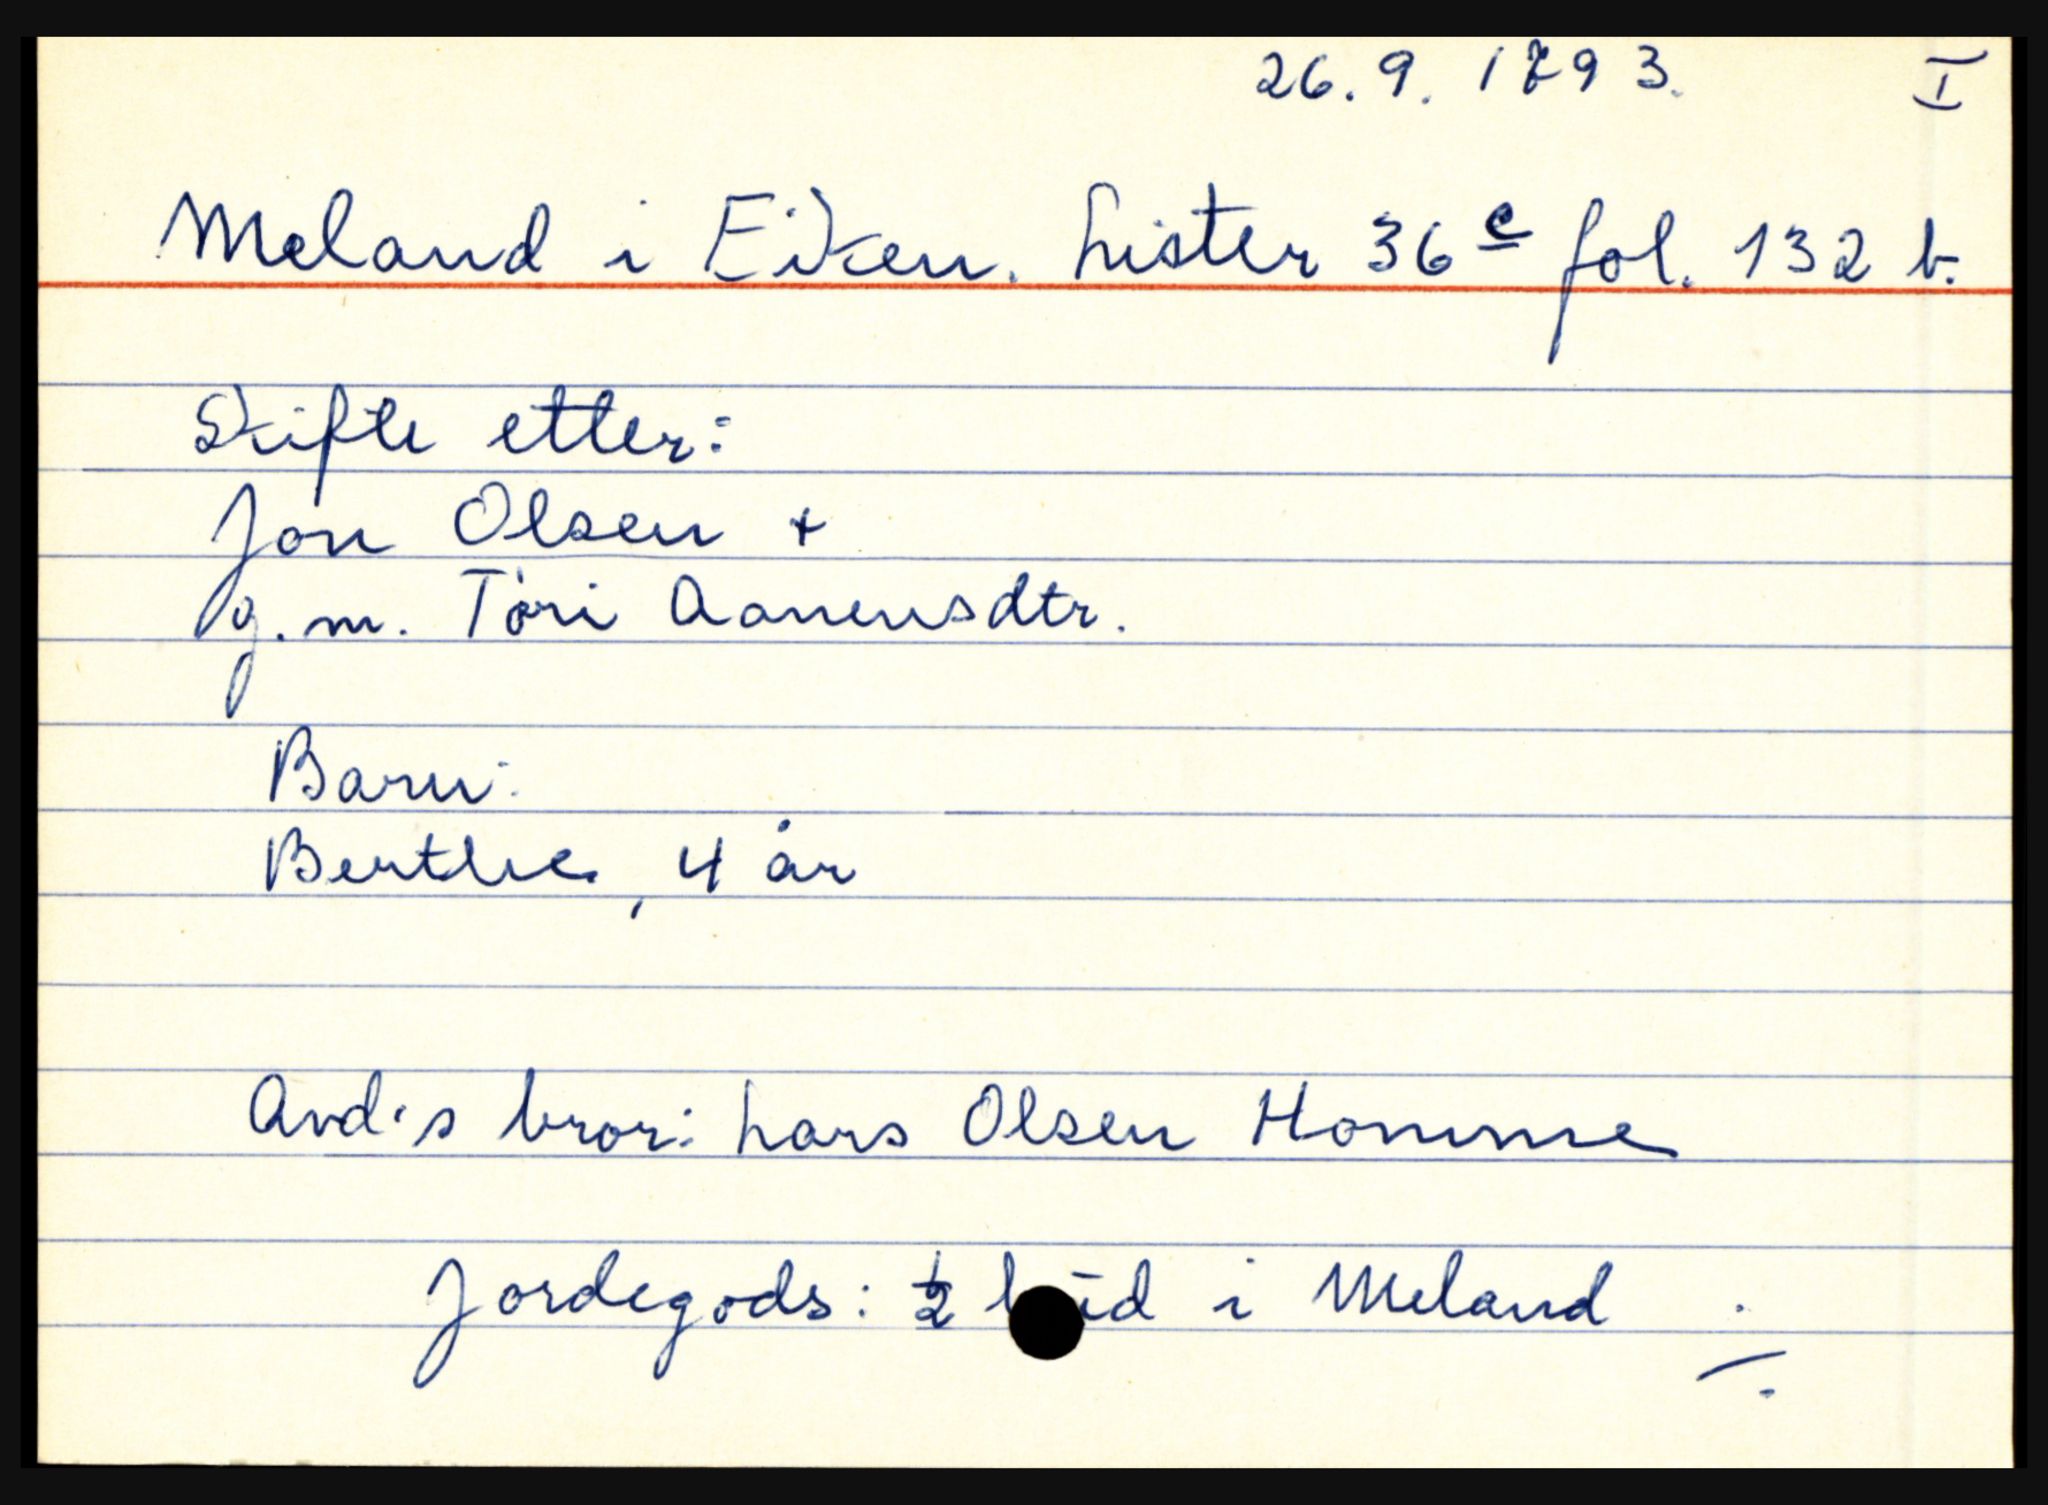 26.9.1793. I
Meland i Eiken. Lister 36 c fol. 132 b.
Skifte etter:
Jon Olsen +
g.m. Tori Aanensdtr.
Barn:
Berthe, 4 år
Avd.s bror: Lars Olsen Homme
Jordegods: ½ i Meland